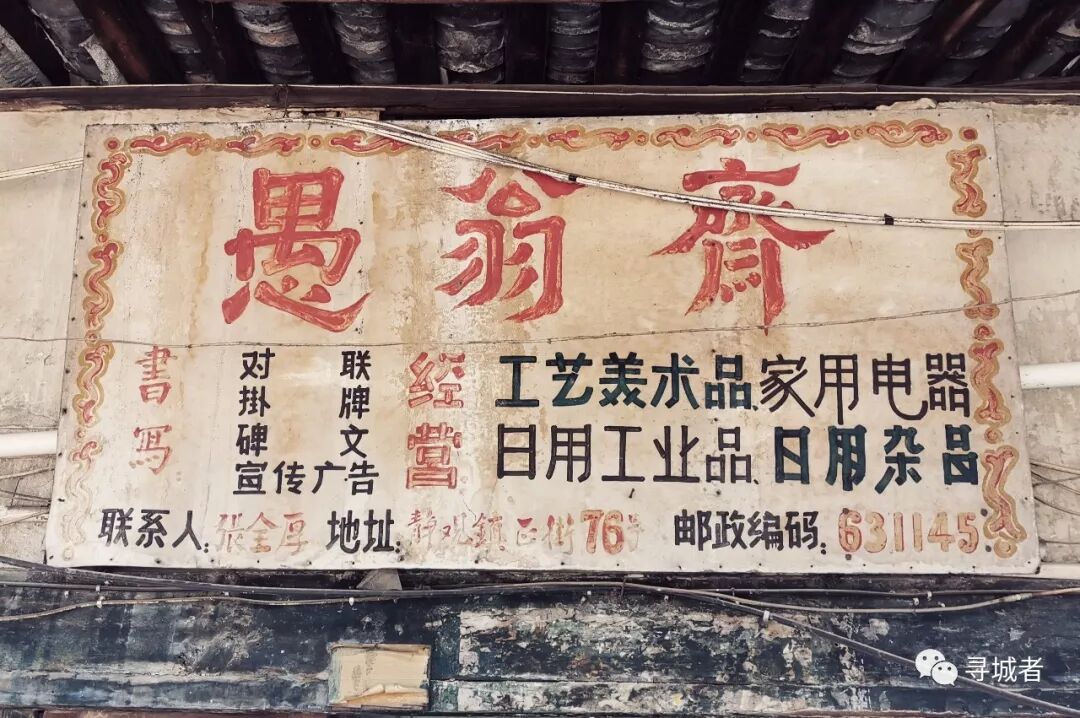 愚翁斋
書写
对联
掛牌
碑文
宣传广告
经营
工艺美术品、家用电器
日用工业品、日用杂品
联系人:张全厚 地址:静观鎮正街76号 邮政编码:631145
寻城者